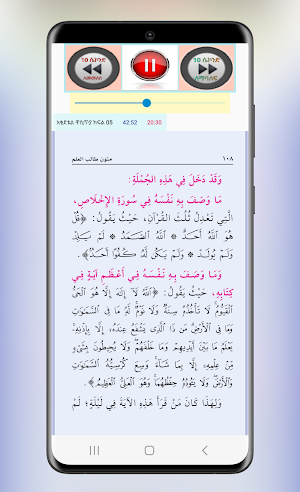 10 ሰኮንድ
10 ሰኮንድ
ለማሳለፍ
አቂደቱል ዋሲጥያ ክፍል 05 42:52 20:30
متون طالب العلم ١٠٨
وَقَدْ دَخَلَ فِي هَذِهِ الْجُمْلَةِ:
مَا وَصَفَ بِهِ نَفْسَهُ فِي سُورَةِ الْإِخْلَاصِ،
الَّتِي تَعْدِلُ ثُلُثَ الْقُرْآنِ، حَيْثُ يَقُولُ: ﴿قُلْ
هُوَ ٱللَّهُ أَحَدٌ * ٱللَّهُ ٱلصَّمَدُ * لَمْ يَلِدْ
وَلَمْ يُولَدْ * وَلَمْ يَكُن لَّهُۥ كُفُوًا أَحَدٌۢ﴾.
وَمَا وَصَفَ بِهِ نَفْسَهُ فِي أَعْظَمِ آيَةٍ فِي
كِتَابِهِ، حَيْثُ يَقُولُ: ﴿ٱللَّهُ لَآ إِلَٰهَ إِلَّا هُوَ ٱلْحَىُّ
ٱلْقَيُّومُ لَا تَأْخُذُهُۥ سِنَةٌ وَلَا نَوْمٌ لَّهُۥ مَا فِى ٱلسَّمَٰوَٰتِ
وَمَا فِى ٱلْأَرْضِ مَن ذَا ٱلَّذِى يَشْفَعُ عِندَهُۥٓ إِلَّا بِإِذْنِهِۦ
يَعْلَمُ مَا بَيْنَ أَيْدِيهِمْ وَمَا خَلْفَهُمْ وَلَا يُحِيطُونَ بِشَىْءٍ
مِّنْ عِلْمِهِۦٓ إِلَّا بِمَا شَآءَ وَسِعَ كُرْسِيُّهُ ٱلسَّمَٰوَٰتِ
وَٱلْأَرْضَ وَلَا يَـُٔودُهُۥ حِفْظُهُمَا وَهُوَ ٱلْعَلِىُّ ٱلْعَظِيمُ﴾.
وَلِهَذَا كَانَ مَنْ قَرَأَ هَذِهِ الْآيَةَ فِي لَيْلَةٍ؛ لَمْ